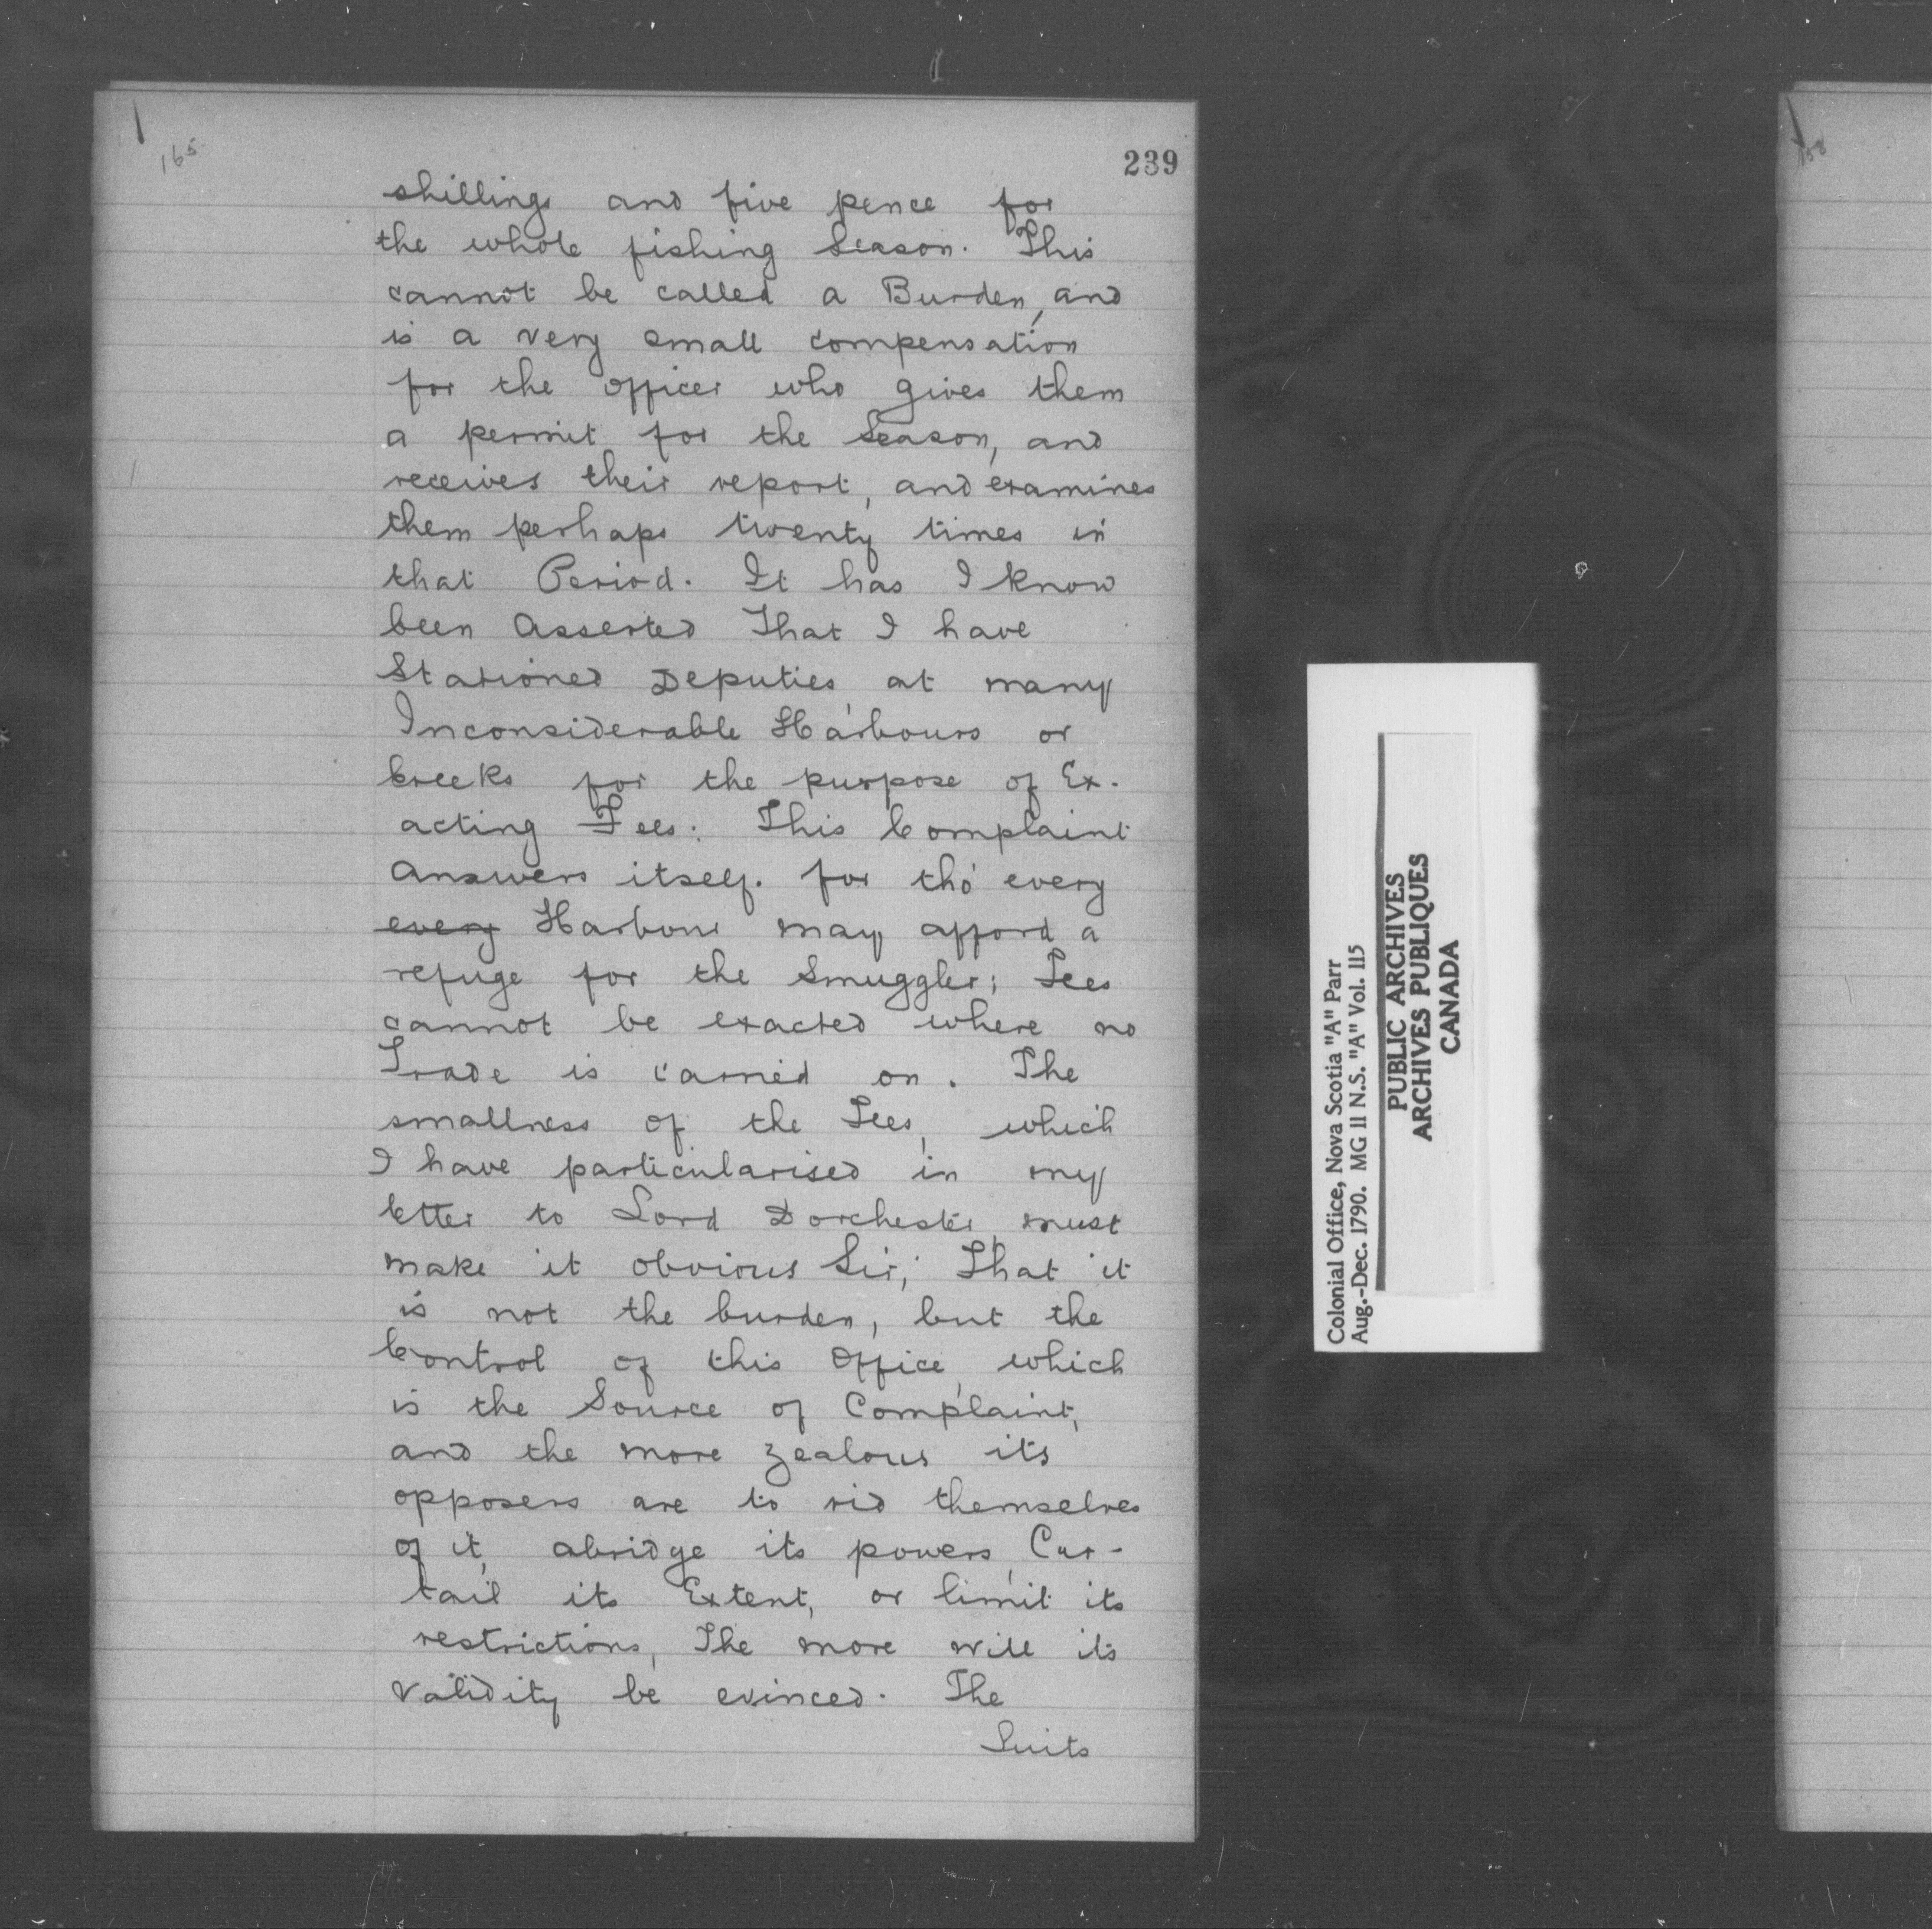 165
239
shillings and five pence for
the whole fishing Season. This
cannot be called a Burden, and
is a very small compensation
for the officer who gives them
a permit for the Season, and
receives their report, and examines
them perhaps twenty times in
that Period. It has I know
been Asserted That I have
Stationed Deputies, at many
Inconsiderable Harbours or
Creeks for the purpose of Ex-
acting Fees: This Complaint
Answers itself. for tho' every
every Harbour may afford a
refuge for the Smuggler; Fees
cannot be exacted where no
Trade is carried on. The
smallness of the Fees, which
I have particularised in my
letter to Lord Dorchester, must
make it obvious Sir, That it
is not the burden, but the
Control of this Office, which
is the Source of Complaint,
and the more zealous its
opposers are to rid themselves
of it, abridge its powers, Cur-
tail its Extent, or limit its
restrictions, The more will its
Validity be evinced. The
Suits
Colonial Office, Nova Scotia "A" Parr
Aug.-Dec. 1790. MG 11 N.S. "A" Vol. 115
PUBLIC ARCHIVES
ARCHIVES PUBLIQUES
CANADA